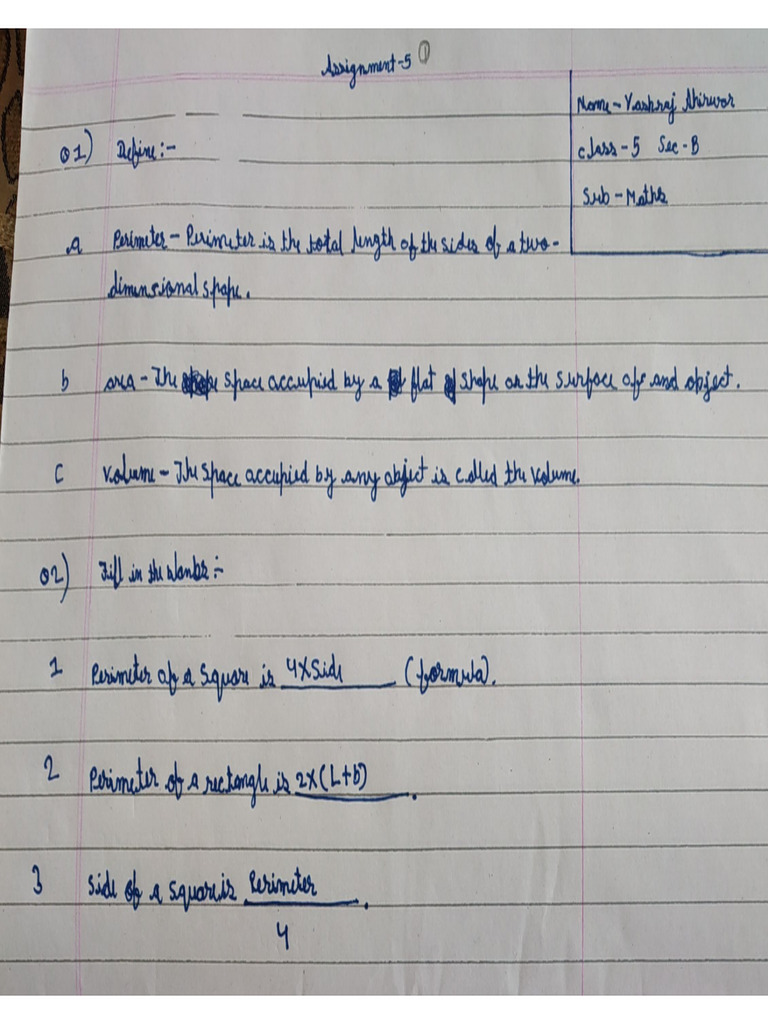 Assignment-5 ①
Name - Yashraj Ahirwar
Class - 5 Sec - B
Sub - Maths
Q1) Define :-
A Perimeter - Perimeter is the total length of the sides of a two-
dimensional shape.
b area - The space occupied by a flat shape or the surface of and object.
C Volume - The space occupied by any object is called the volume.
Q2) Fill in the blanks :-
1 Perimeter of a square is 4×Side (formula).
2 Perimeter of a rectangle is 2×(L+b).
3 Side of a square is Perimeter.
4